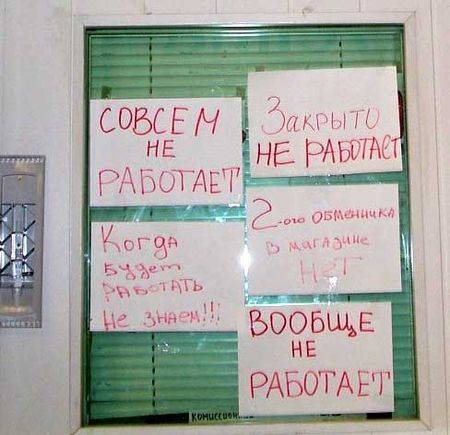 СОВСЕМ
НЕ
РАБОТАЕТ
Закрыто
НЕ РАБОТАЕТ
Когда
будет
РАБОТАТЬ
Не знаем!!!
2-ого ОБМЕННИКА
В магазине
НЕТ
ВООБЩЕ
НЕ
РАБОТАЕТ